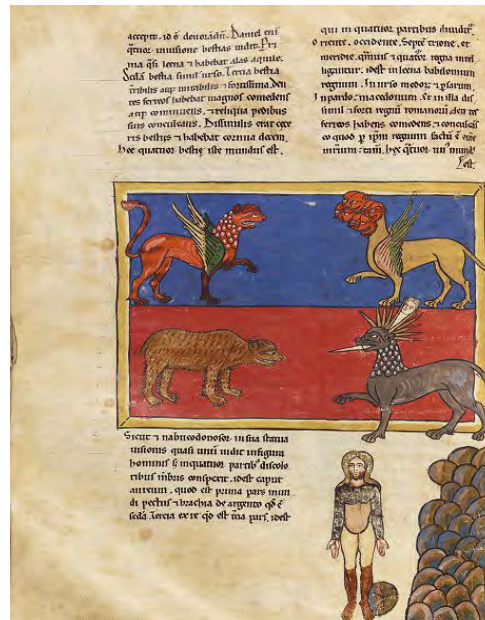 accepit. id ē deuorādū. Daniel eni
q̄tuor inuisione bestias uidit. Pri
ma q̄si leena ⁊ habebat alas aquile.
Scda bestia simil urso. Tercia bestia
tribilis atq; mirabilis ⁊ fortissima. Den
tes ferreos habebat magnos comedens
atq; cominuens. ⁊ reliquia pedibus
suis conculcans. Dissimilis erat cete
ris bestiis ⁊ habebat cornua decem.
hec quatuor bestie iste mundus est.
qui in quatuor partibus diuidit᷑.
oriente. occidente. Septētrione. et
meridie. q̄muis ⁊ quatuor regna intel
liguntur. idest in leena babilonium
regnum. In urso medoꝝ ⁊ psarum.
In pardo. macedonum. Et in illa dis
simili ⁊ forti regnū romanorū den tes
ferreos habens. comedens ⁊ conculcās
eo quod p ipm regnum factū ē
hec q̄tuor mund
est.
Sicut ⁊ nabucodonosor insua statua
uisionis quasi unū uidit infigura
hominis s; inquatuor partib; discolo
ribus mbris conspexit. idest caput
aureum. quod est prima pars mun
di pectus ⁊ brachia de argento qd ē
scda. Tercia ex ere qd est tcia pars. idest